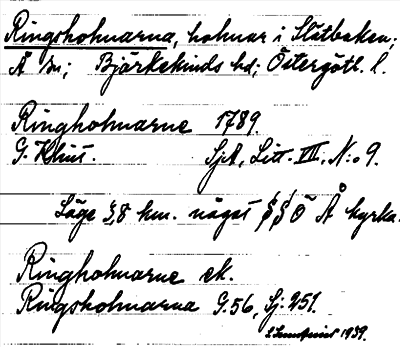 Ringsholmarna, holmar i Slätbaken;
Å sn; Björkekinds hd; Östergötl. l.
Ringholmarne 1789.
G. Klint. SjA, Litt. III, N:o 9.
Läge 3,8 km. något Ö Å kyrka.
Ringholmarne ek.
Ringsholmarna G. 56, Sj. 251.
1939.